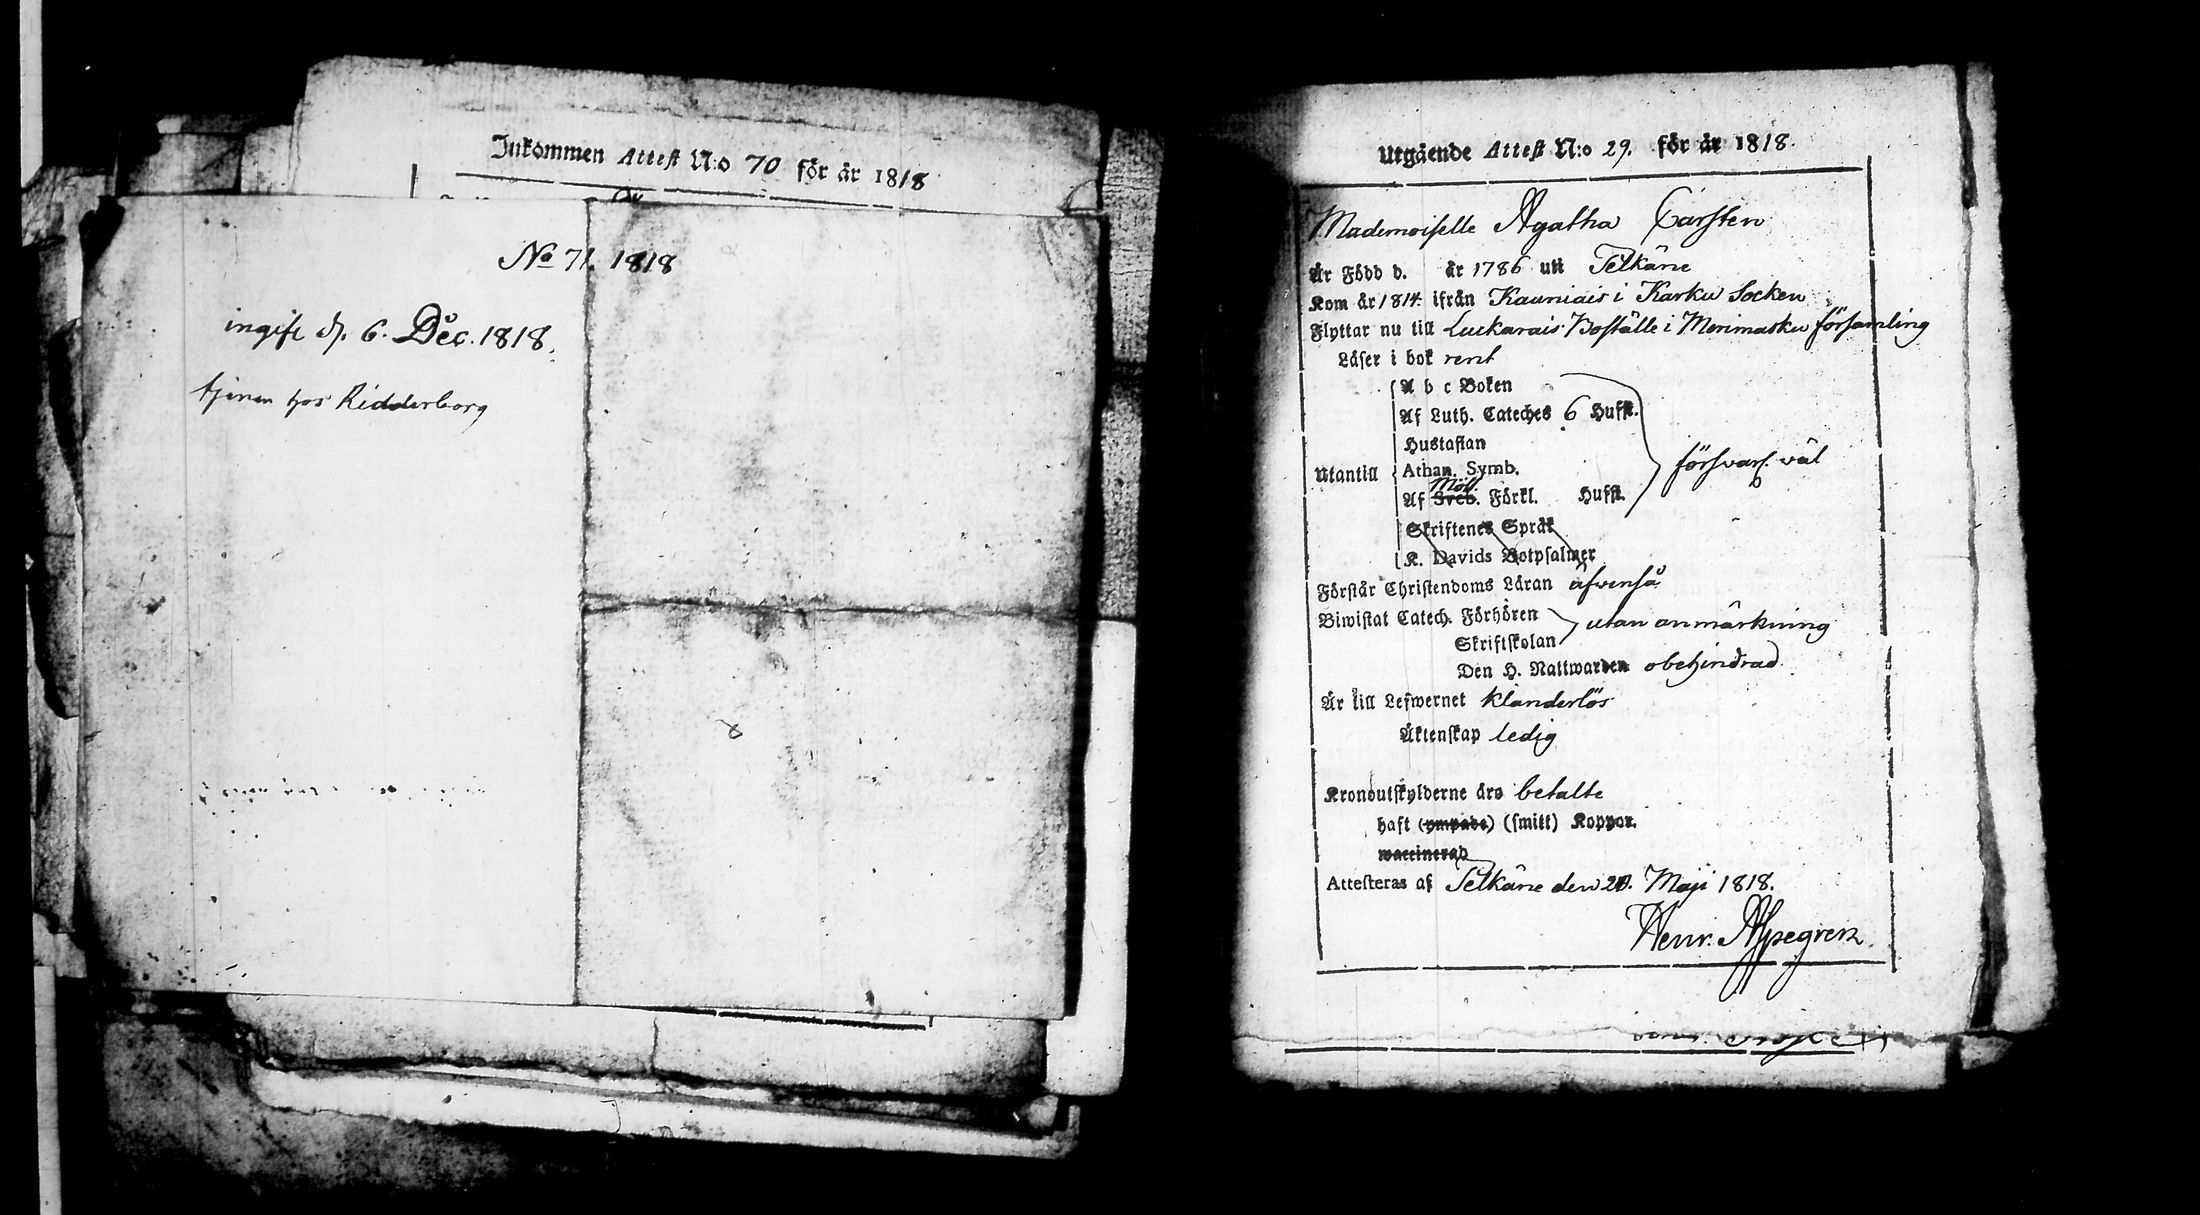 Inkommen Attest N:o 70 för år 1818
No 71. 1818
ingift d. 6. Dec. 1818.
tjenar hos Ridderborg
Utgående Attest N:o 29. för år 1818.
Mademoiselle Agatha Carsten
Är Född d. år 1786 uti Selkäne
Kom år 1814. ifrån Kauniais i Karku Socken
Flyttar nu till Luckarais Boställe i Merimasku församling
Läser i bok rent
A b c Boken
Af Luth. Cateches 6 Hufst.
Hustaflan
Utantill Athan. Symb. försvarl. väl
Af Sveb. Möll. Förkl. Hufst.
Skriftenes Språk
K. Davids Botpsalmer
Förstår Christendoms Läran äfvenså
Biwistat Catech. Förhören utan anmärkning
Skriftskolan
Den H. Nattwarden obehindrad.
Är till Lefwernet klanderlös
Äktenskap ledig
Kronoutskylderne äro betalte
haft (ympade) (smitt) Koppor.
waccinerad
Attesteras af Selkäne den 20. Maji 1818.
Henr. Aspegren